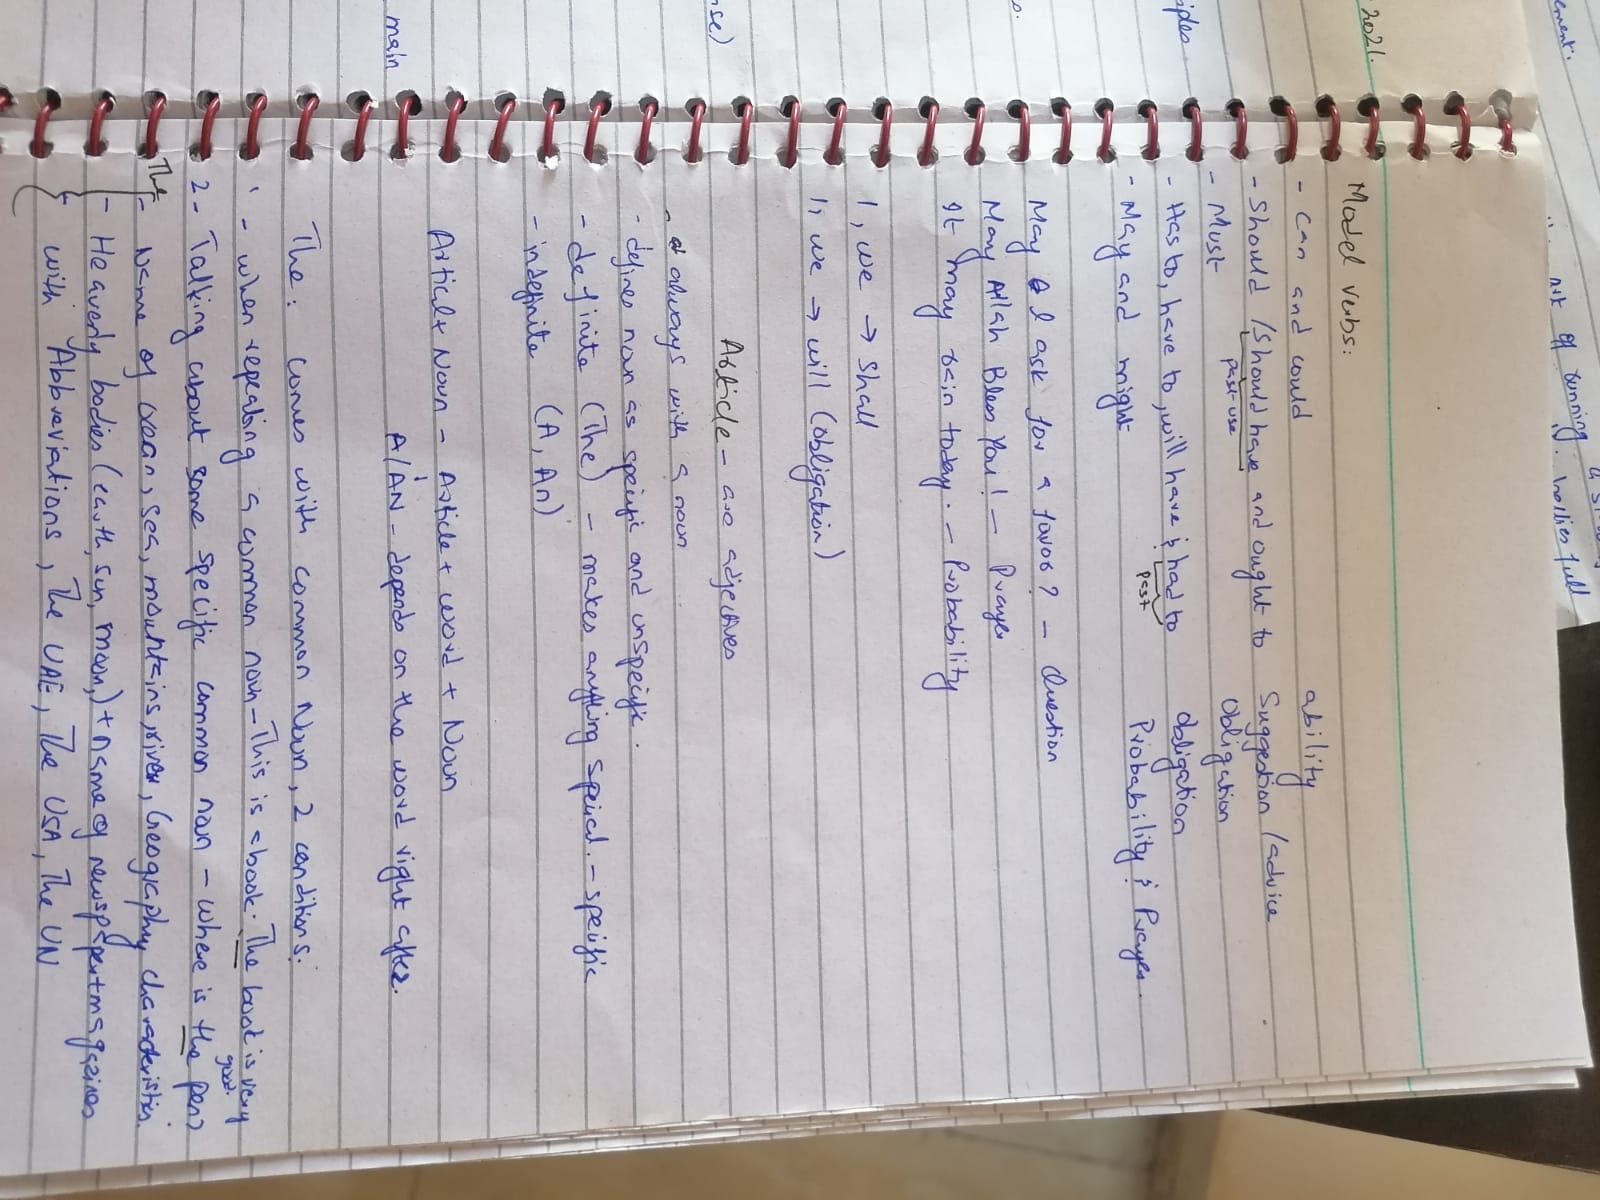 ement.
art of running
bellies full
2021.
Model verbs:
- Can and could ability
- Should /Should have and ought to Suggestion /advice
past use
- Must Obligation
- Has to, have to, will have & had to obligation
past
- May and might Probability & Prayer.
May I ask for a favor? - Question
May Allah Bless You! - Prayer
It may rain today. - Probability
I, we → Shall
I, we → will (obligation)
Article - are adjectives
- always with a noun
- defines noun as specific and unspecific.
- definite (The) - makes anything special. - specific
- indefinite (A, An)
Article + Noun - Article + word + Noun
main
A/AN - depends on the word right after.
The: comes with common Noun, 2 conditions:
1 - when repeating a common noun - This is a book. The book is very
good.
2 - Talking about some specific common noun - where is the pen?
The - Name of ocean, sea, mountains, river, Geography characteristics.
- Heavenly bodies (earth, sun, moon,) + name of newspaper + magazines
with Abbreviations, The UAE, The USA, The UN